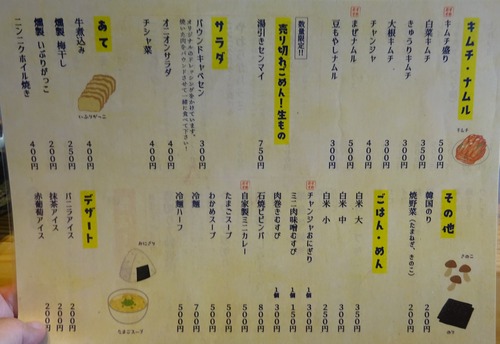 キムチ・ナムル
キムチ盛り 500円
白菜キムチ 350円
きゅうりキムチ 300円
大根キムチ 300円
チャンジャ 400円
まぜナムル 500円
豆もやしナムル 300円
数量限定!!
売り切れごめん!生もの
湯引きセンマイ 750円
サラダ
バウンドキャベセン 300円
オリジナルのドレッシングをかけています。
焼いた肉をバウンドさせて一緒に食べて下さい!
オニオンサラダ 400円
チシャ菜 400円
あて
牛煮込み 400円
燻製 梅干し 250円
燻製 いぶりがっこ 200円
ニンニクホイル焼き 400円
いぶりがっこ
キムチ
その他
韓国のり 200円
焼野菜(たまねぎ、きのこ) 200円
きのこ
のり
ごはん・めん
白米 大 350円
白米 中 250円
白米 小
チャンジャおにぎり 1個 300円
ミニ肉味噌むすび 1個 150円
肉巻きむすび 1個 300円
石焼ビビンバ 800円
自家製ミニカレー 500円
たまごスープ 500円
わかめスープ 500円
冷麺 700円
冷麺ハーフ 500円
おにぎり
たまごスープ
デザート
バニラアイス 200円
抹茶アイス 200円
赤葡萄アイス 200円